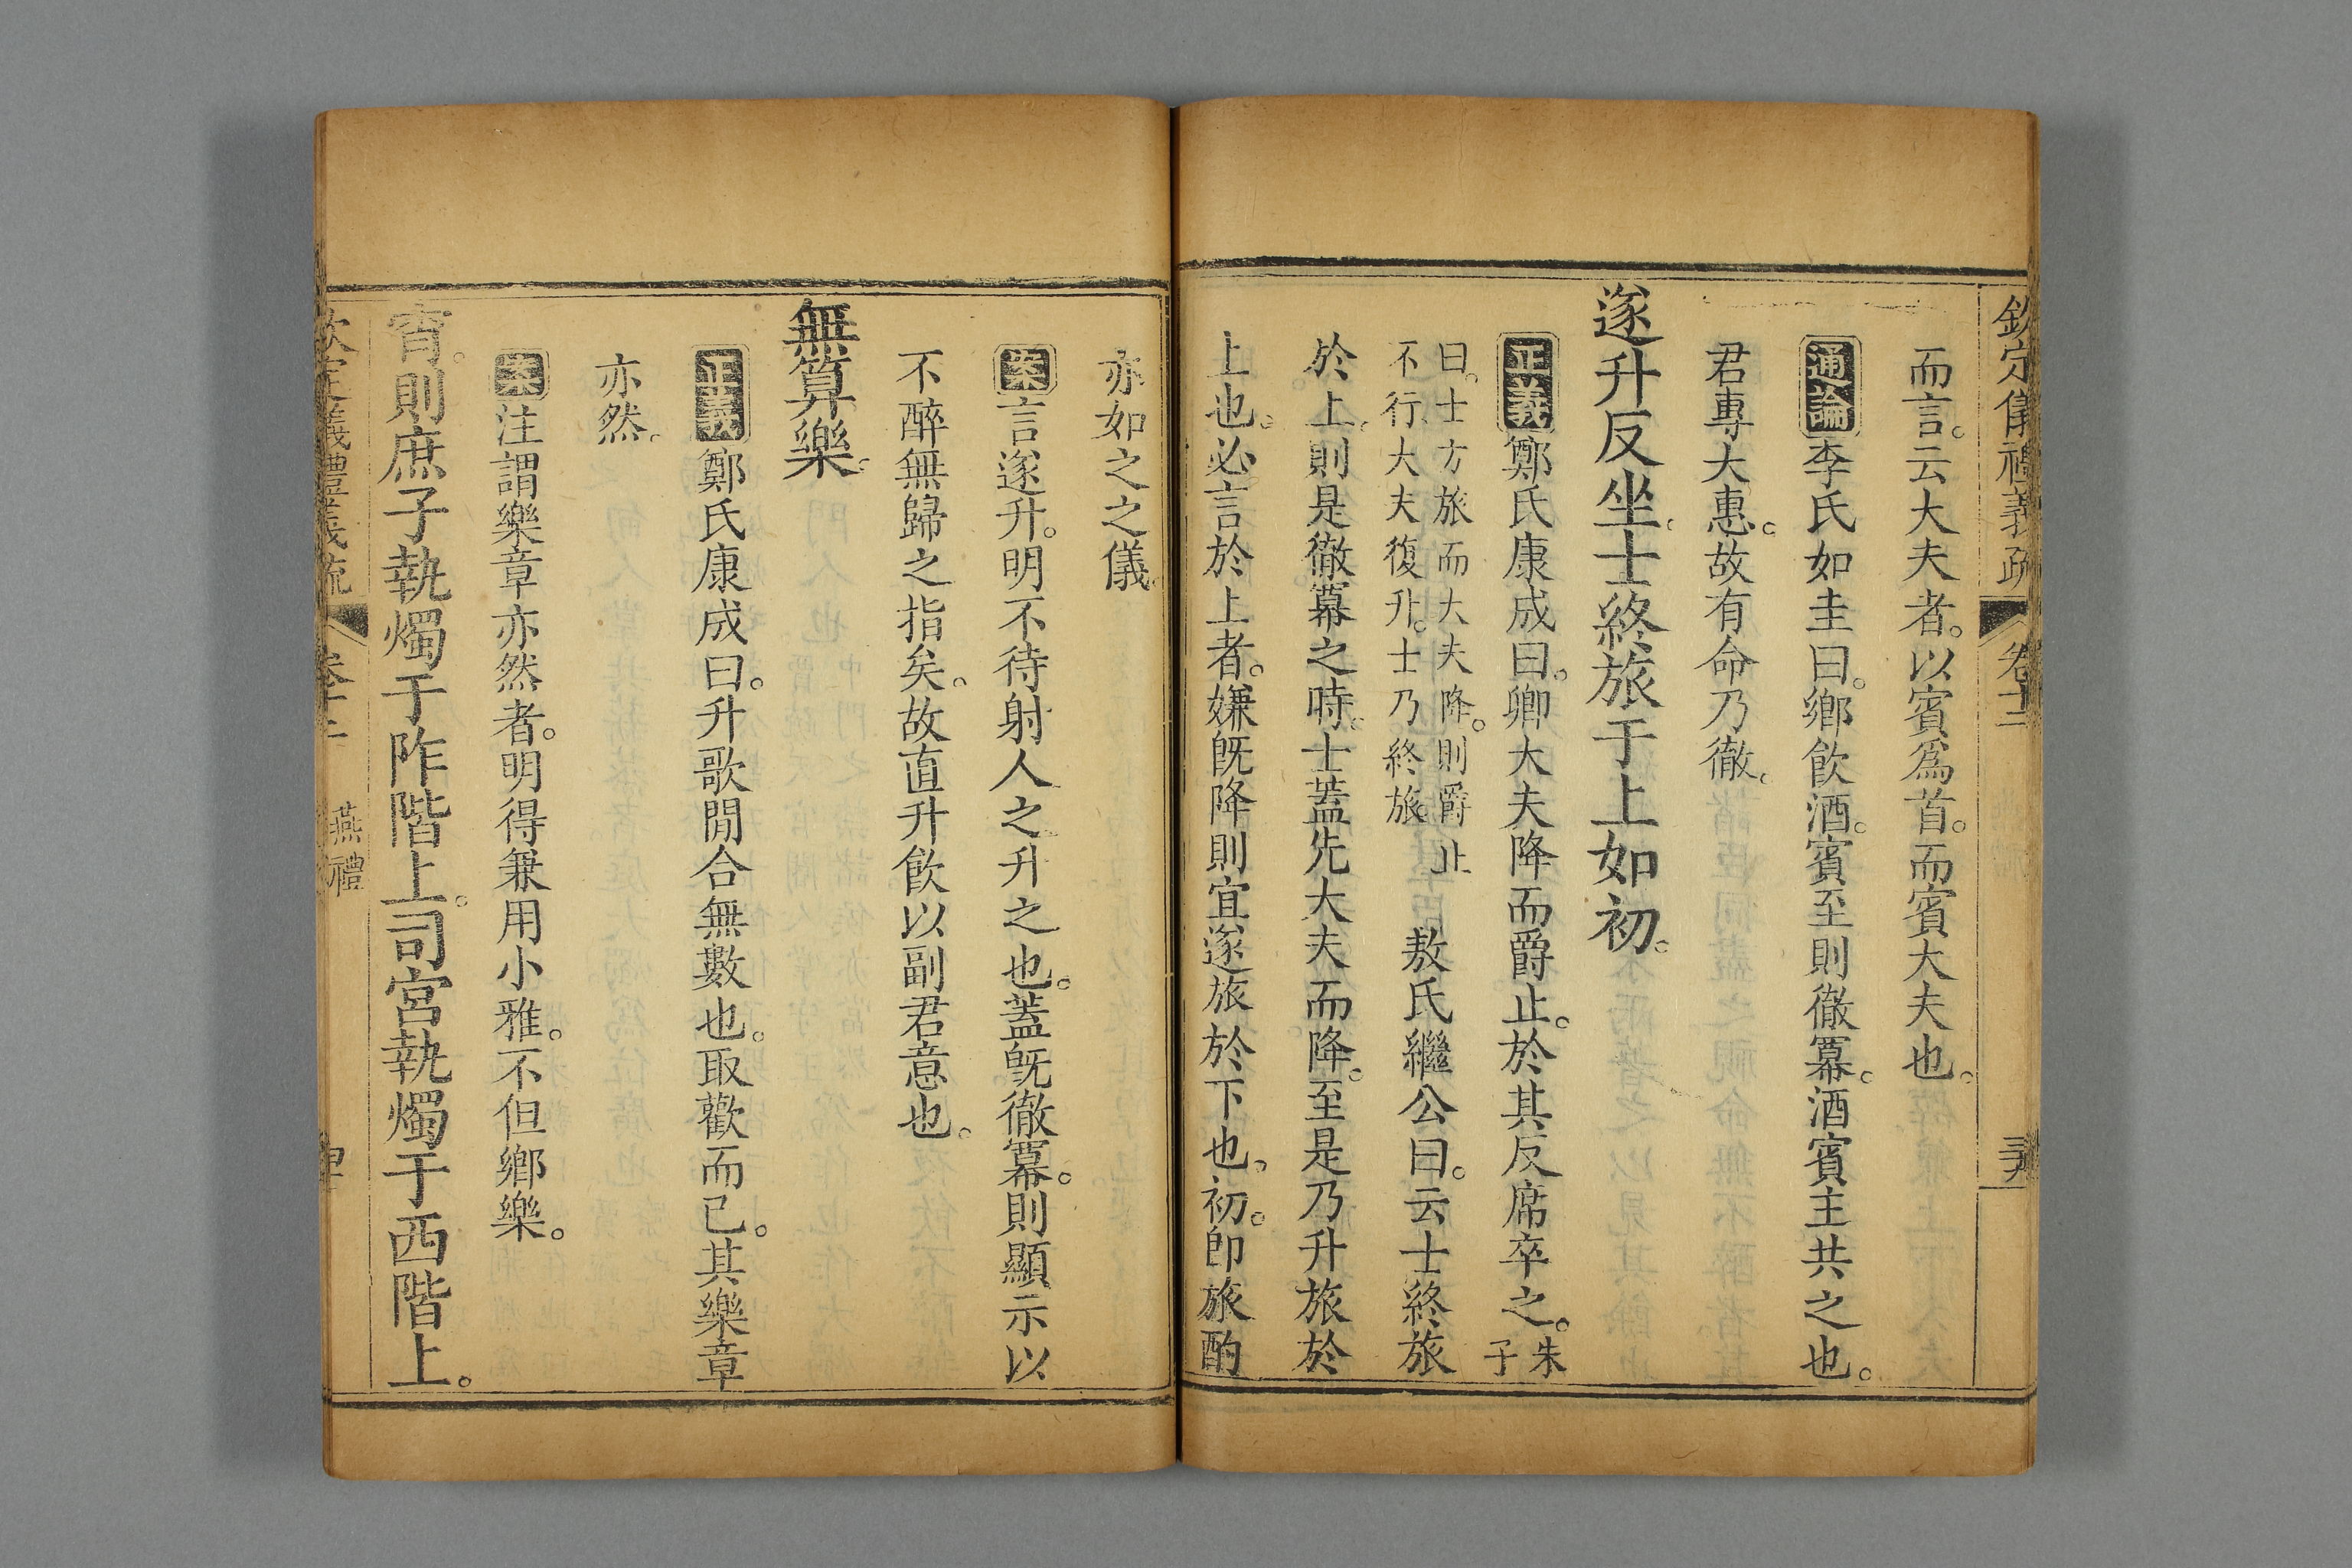 欽定儀禮義疏 卷十二
而言。云大夫者。以賓爲首。而賓大夫也。
通論李氏如圭曰。鄉飲酒。賓至則徹冪。酒賓主共之也。
君專大惠。故有命乃徹。
遂升反坐。士終旅于上如初。
正義鄭氏康成曰。卿大夫降而爵止。於其反席卒之。朱子
曰。士方旅而大夫降。則爵止
不行。大夫復升。士乃終旅。敖氏繼公曰。云士終旅
於上。則是徹冪之時。士蓋先大夫而降。至是乃升旅於
上也。必言於上者。嫌旣降則宜遂旅於下也。初。卽旅酌
亦如之之儀。
案言遂升。明不待射人之升之也。蓋旣徹冪。則顯示以
不醉無歸之指矣。故直升飮以副君意也。
無算樂。
正義鄭氏康成曰。升歌閒合無數也。取歡而已。其樂章
亦然。
案注謂樂章亦然者。明得兼用小雅。不但鄉樂。
宵。則庶子執燭于阼階上。司宮執燭于西階上。
欽定儀禮義疏 卷十二 燕禮